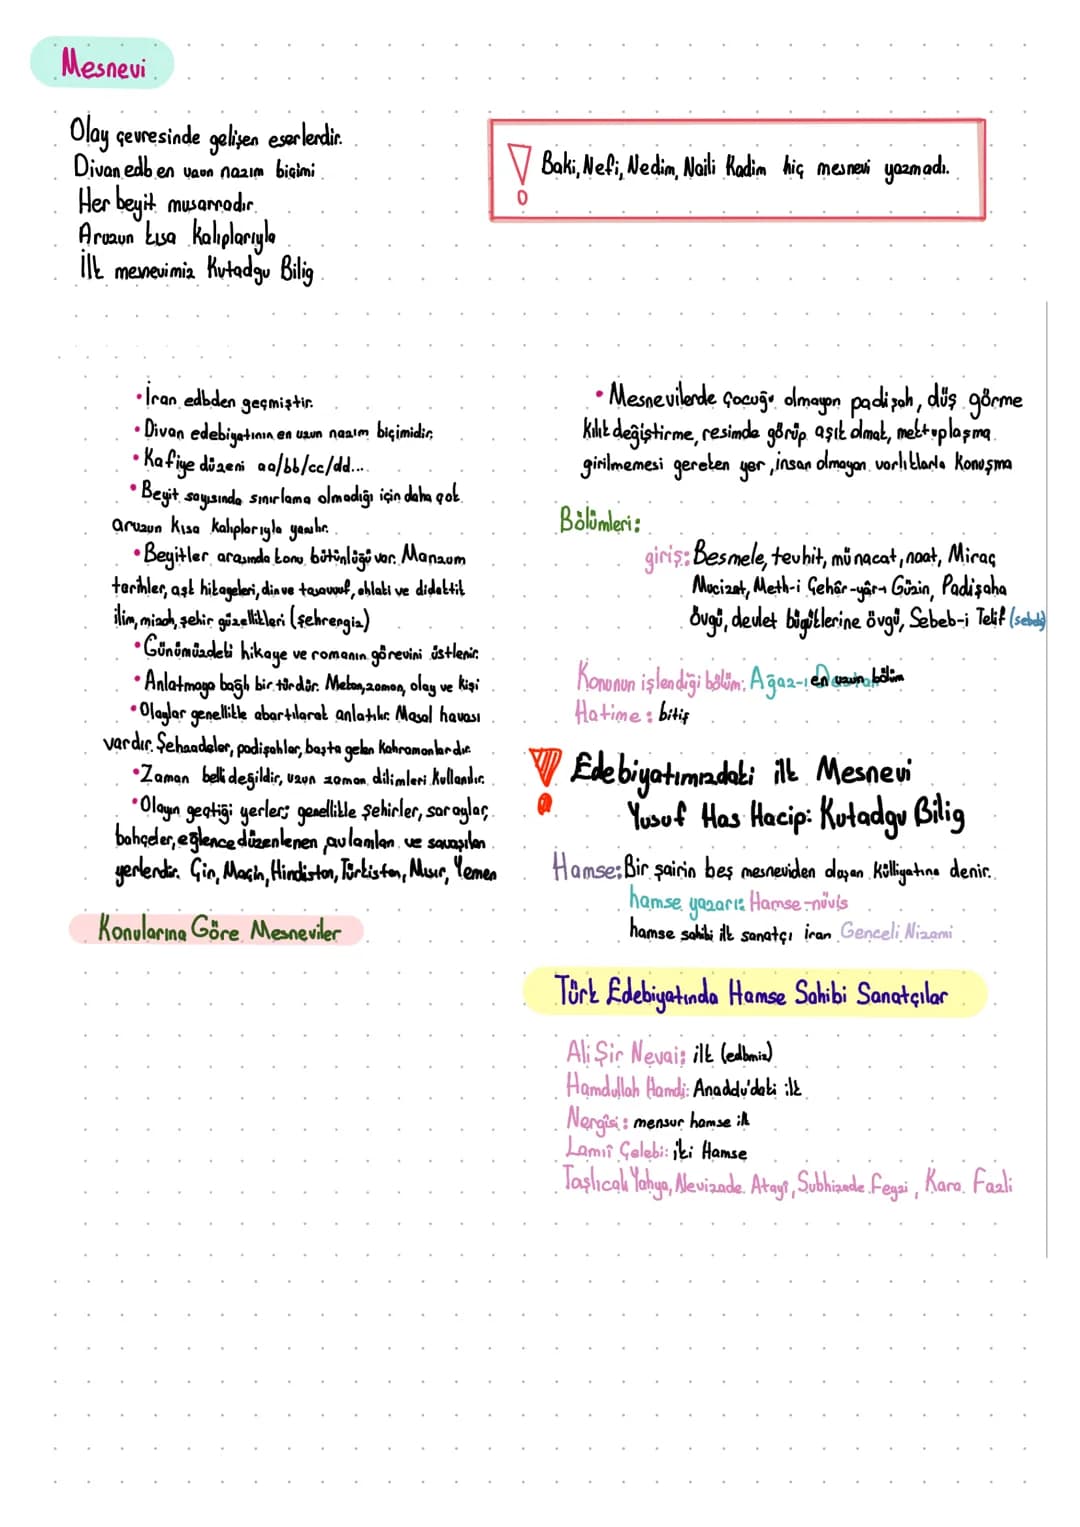 Mesnevi
Olay çevresinde gelişen eserlerdir.
Divan edb en uzun nazım biçimi
Her beyit musarradır
Aruzun kısa kalıplarıyla
İlk mesnevimiz Kutadgu Bilig
Baki, Nefi, Nedim, Naili Kadim hiç mesnevi yazmadı.
•İran edbden geçmiştir.
•Divan edebiyatının en uzun nazım biçimidir.
•Kafiye düzeni aa/bb/cc/dd...
•Beyit sayısında sınırlama olmadığı için daha çok
aruzun kısa kalıplarıyla yazılır.
•Beyitler arasında konu bütünlüğü var. Manzum
tarihler, aşk hikayeleri, din ve tasavvuf, ahlaki ve didaktik
ilim, mizah, şehir güzellikleri (şehrengiz)
•Günümüzdeki hikaye ve romanın görevini üstlenir.
•Anlatmaya bağlı bir türdür. Mekan, zaman, olay ve kişi
•Olaylar genellikle abartılarak anlatılır. Masal havası
vardır. Şehzadeler, padişahlar, başta gelen kahramanlardır.
•Zaman belli değildir, uzun zaman dilimleri kullanılır.
•Olayın geçtiği yerler; genellikle şehirler, saraylar,
bahçeler, eğlence düzenlenen, avlanılan ve savaşılan
yerlerdir. Çin, Maçin, Hindistan, Türkistan, Mısır, Yemen
Konularına Göre Mesneviler
•Mesnevilerde çocuğu olmayan padişah, düş görme
kılık değiştirme, resimde görüp aşık olmak, mektuplaşma
girilmemesi gereken yer, insan olmayan varlıklarla konuşma
Bölümleri:
giriş: Besmele, tevhit, münacat, naat, Miraç
Mucizat, Meth-i Çehâr-yâr-ı Güzin, Padişaha
Övgü, devlet büyüklerine övgü, Sebeb-i Telif (sebebi)
Konunun işlendiği bölüm: Ağaz-ı en uzun bölüm
Hatime: bitiş
Edebiyatımızdaki ilk Mesnevi
Yusuf Has Hacip: Kutadgu Bilig
Hamse: Bir şairin beş mesneviden oluşan külliyatına denir.
hamse yazarı: Hamse-nüvis
hamse sahibi ilk sanatçı iran Genceli Nizami
Türk Edebiyatında Hamse Sahibi Sanatçılar
Ali Şir Nevai: ilk (edbmiz)
Hamdullah Hamdi: Anadolu'daki ilk
Nergisi: mensur hamse ilk
Lamiî Çelebi: iki Hamse
Taşlıcalı Yahya, Nevizade Atayî, Subhizade Feyzi, Kara Fazli